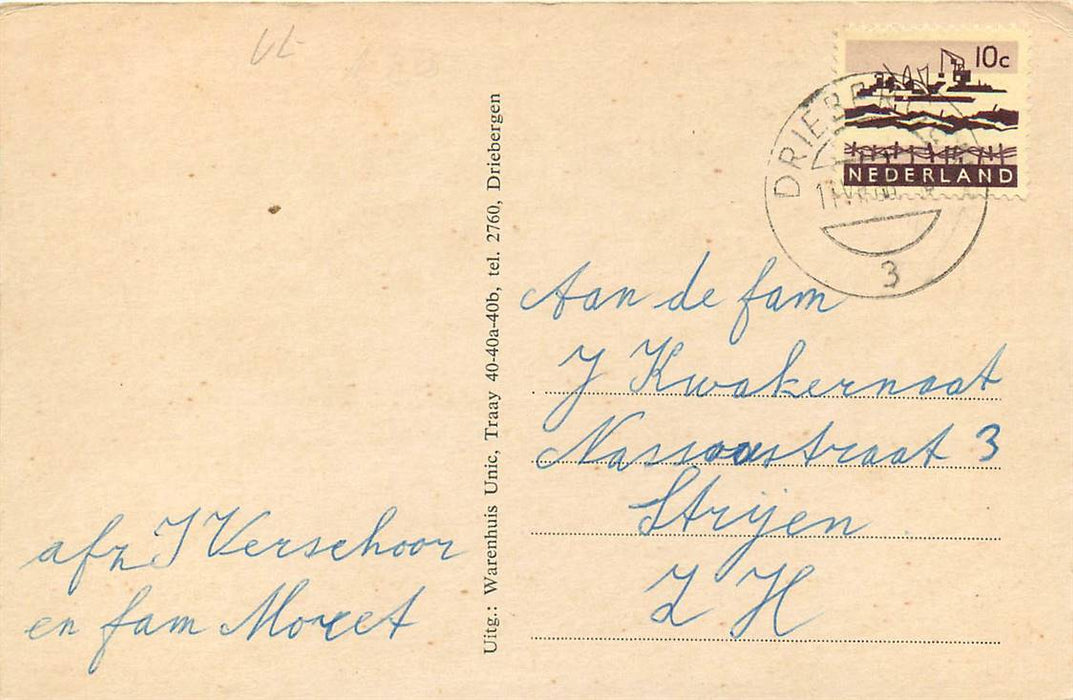 VL
10c
NEDERLAND
DRIEBERGEN
3
Uitg.: Warenhuis Unic, Traay 40-40a-40b, tel. 2760, Driebergen
Aan de fam
J Kwakernaat
Nassaustraat 3
Strijen
Z H
afz J Verschoor
en fam Moret